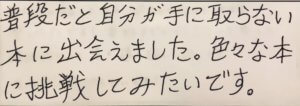 普段だと自分が手に取らない
本に出会えました。色々な本
に挑戦してみたいです。